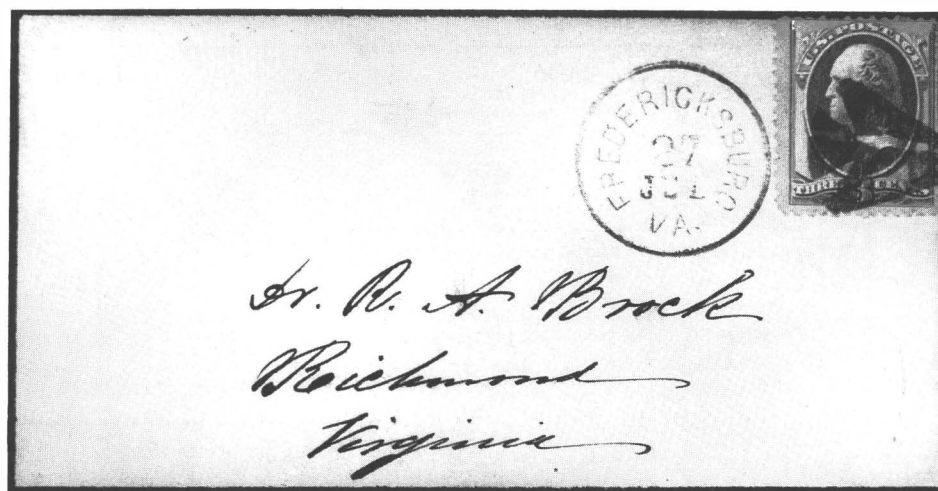 U.S. POSTAGE
THREE CENTS
FREDERICKSBURG
27
JUL
VA.
Dr. R. A. Brock
Richmond
Virginia